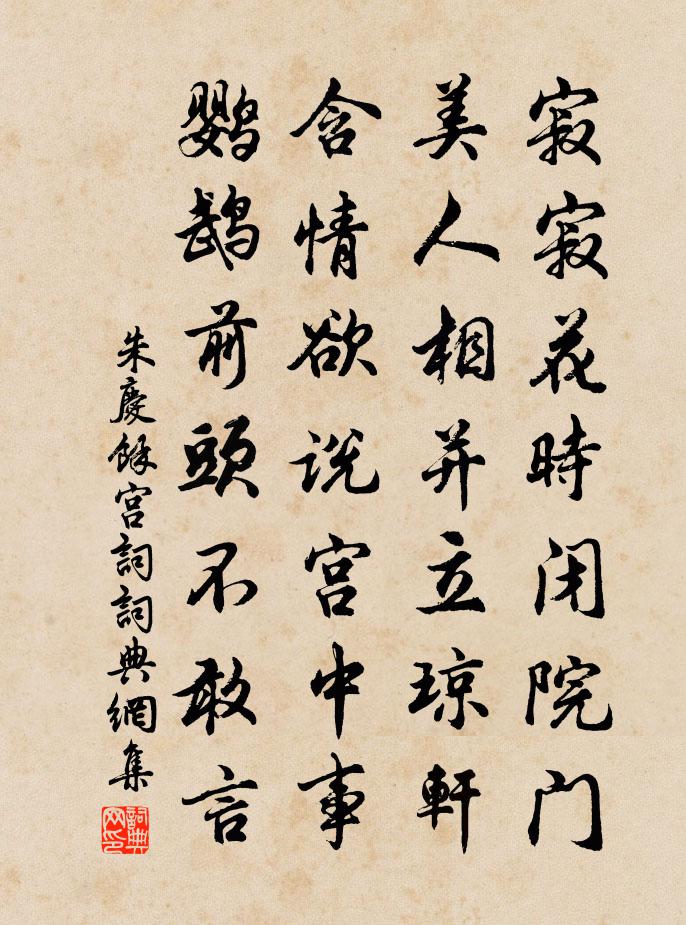 寂寂花時闭院门
美人相并立琼軒
含情欲说宫中事
鹦鹉前頭不敢言
朱慶餘宫詞詞典網集
詞典网印